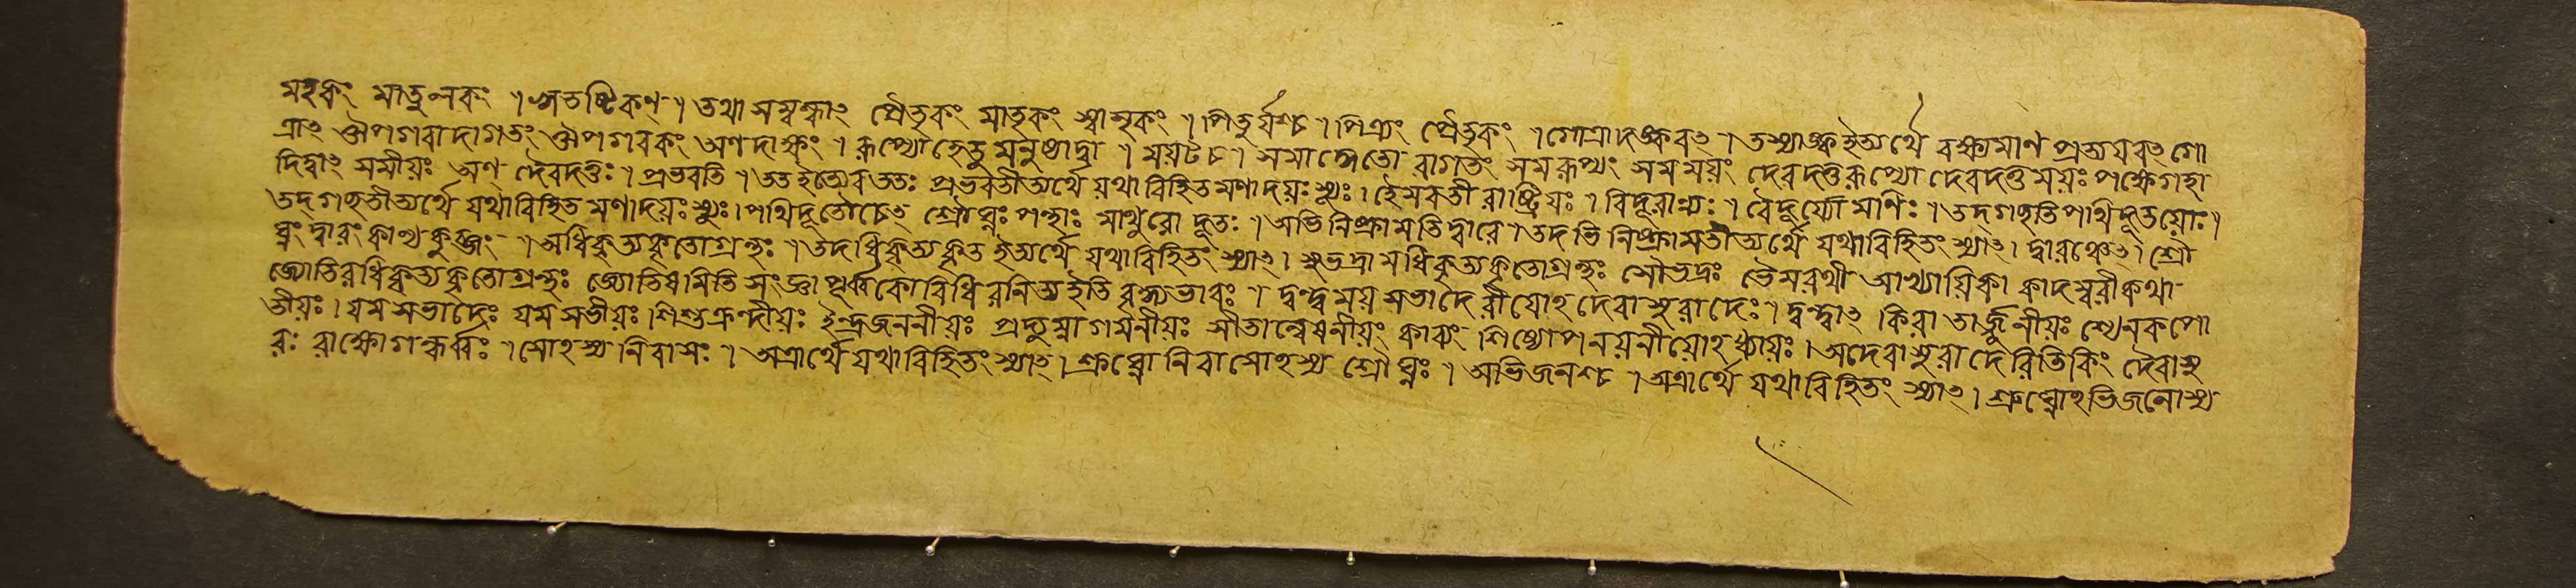 মহকং মাতুলকং । ঋতষ্টিকণ্ । তথা সম্বন্ধাৎ পৈতৃকং মাতৃকং স্বাসৃকং । পিতুর্যশ্চ । পিত্র্যং পৈতৃকং । গোত্রাদঙ্কবৎ । তস্যাঙ্ক ইত্যর্থে বক্ষ্যমাণ প্রত্যয়বৎ গো
ত্রাৎ ঔপগবাদাগতং ঔপগবকং অণ দাক্ষং । রূপ্যোহেতু মনুষ্যাদ্বা । ময়টচ । সমাদ্ধেতো রাগতং সমরূপ্যং সমময়ং দেবদত্তরূপ্যো দেবদত্তময়ঃ পক্ষেগহা
দিত্বাৎ সমীয়ঃ অণ্ দৈবদত্তঃ । প্রভবতি । তত ইত্যেব ততঃ প্রভবতীত্যর্থে যথাবিহিতমণাদয়ঃ স্যুঃ । হৈমবতী রাষ্ট্রিয়ঃ । বিদূরান্ন্যঃ । বৈদূর্য্যো মণিঃ । তদ্গচ্ছতি পথিদূতয়োঃ ।
তদ্ গচ্ছতীত্যর্থে যথাবিহিত মণাদয়ঃ স্যুঃ । পথিদূতৌচেৎ শ্রৌঘ্নঃ পন্থাঃ মাথুরো দূতঃ । অভিনিষ্ক্রামতি দ্বারে । তদভিনিষ্ক্রামতীত্যর্থে যথাবিহিতং স্যাৎ । দ্বারঞ্চেৎ । শ্রৌ
ঘ্নং দ্বারং কান্যকুব্জং । অধিকৃত্যকৃতোগ্রন্থঃ । তদধিকৃত্য কৃত ইত্যর্থে যথাবিহিতং স্যাৎ । সুভদ্রামধিকৃত্যকৃতোগ্রন্থঃ সৌভদ্রঃ ভৈমরথী আখ্যায়িকা কাদম্বরীকথা
জ্যোতিরধিকৃত্যকৃতোগ্রন্থঃ জ্যোতিষমিতি সংজ্ঞাপূর্ব্বকোবিধিরনিত্য ইতি বৃদ্ধ্যভাবঃ । দ্বন্দ্ব ময়সভাদেরীয়োঽদেবাসুরাদেঃ । দ্বন্দ্বাৎ কিরাতার্জ্জুনীয়ঃ শ্যেনকপো
তীয়ঃ । যমসভাদেঃ যমসভীয়ঃ । শিশুক্রন্দীয়ঃ ইন্দ্রজননীয়ঃ প্রদ্যুম্নাগমনীয়ঃ সীতান্বেষণীয়ং কাব্যং শিষ্যোপনয়নীয়োঽধ্যায়ঃ । অদেবাসুরাদেরিতিকিং দৈবাসু
রঃ রাক্ষোগন্ধর্ব্বঃ । সোঽস্য নিবাসঃ । অত্রার্থে যথাবিহিতং স্যাৎ । শ্রুঘ্নো নিবাসোঽস্য শ্রৌঘ্নঃ । অভিজনশ্চ । অত্রার্থে যথাবিহিতং স্যাৎ । শ্রুঘ্নোঽভিজনোস্য